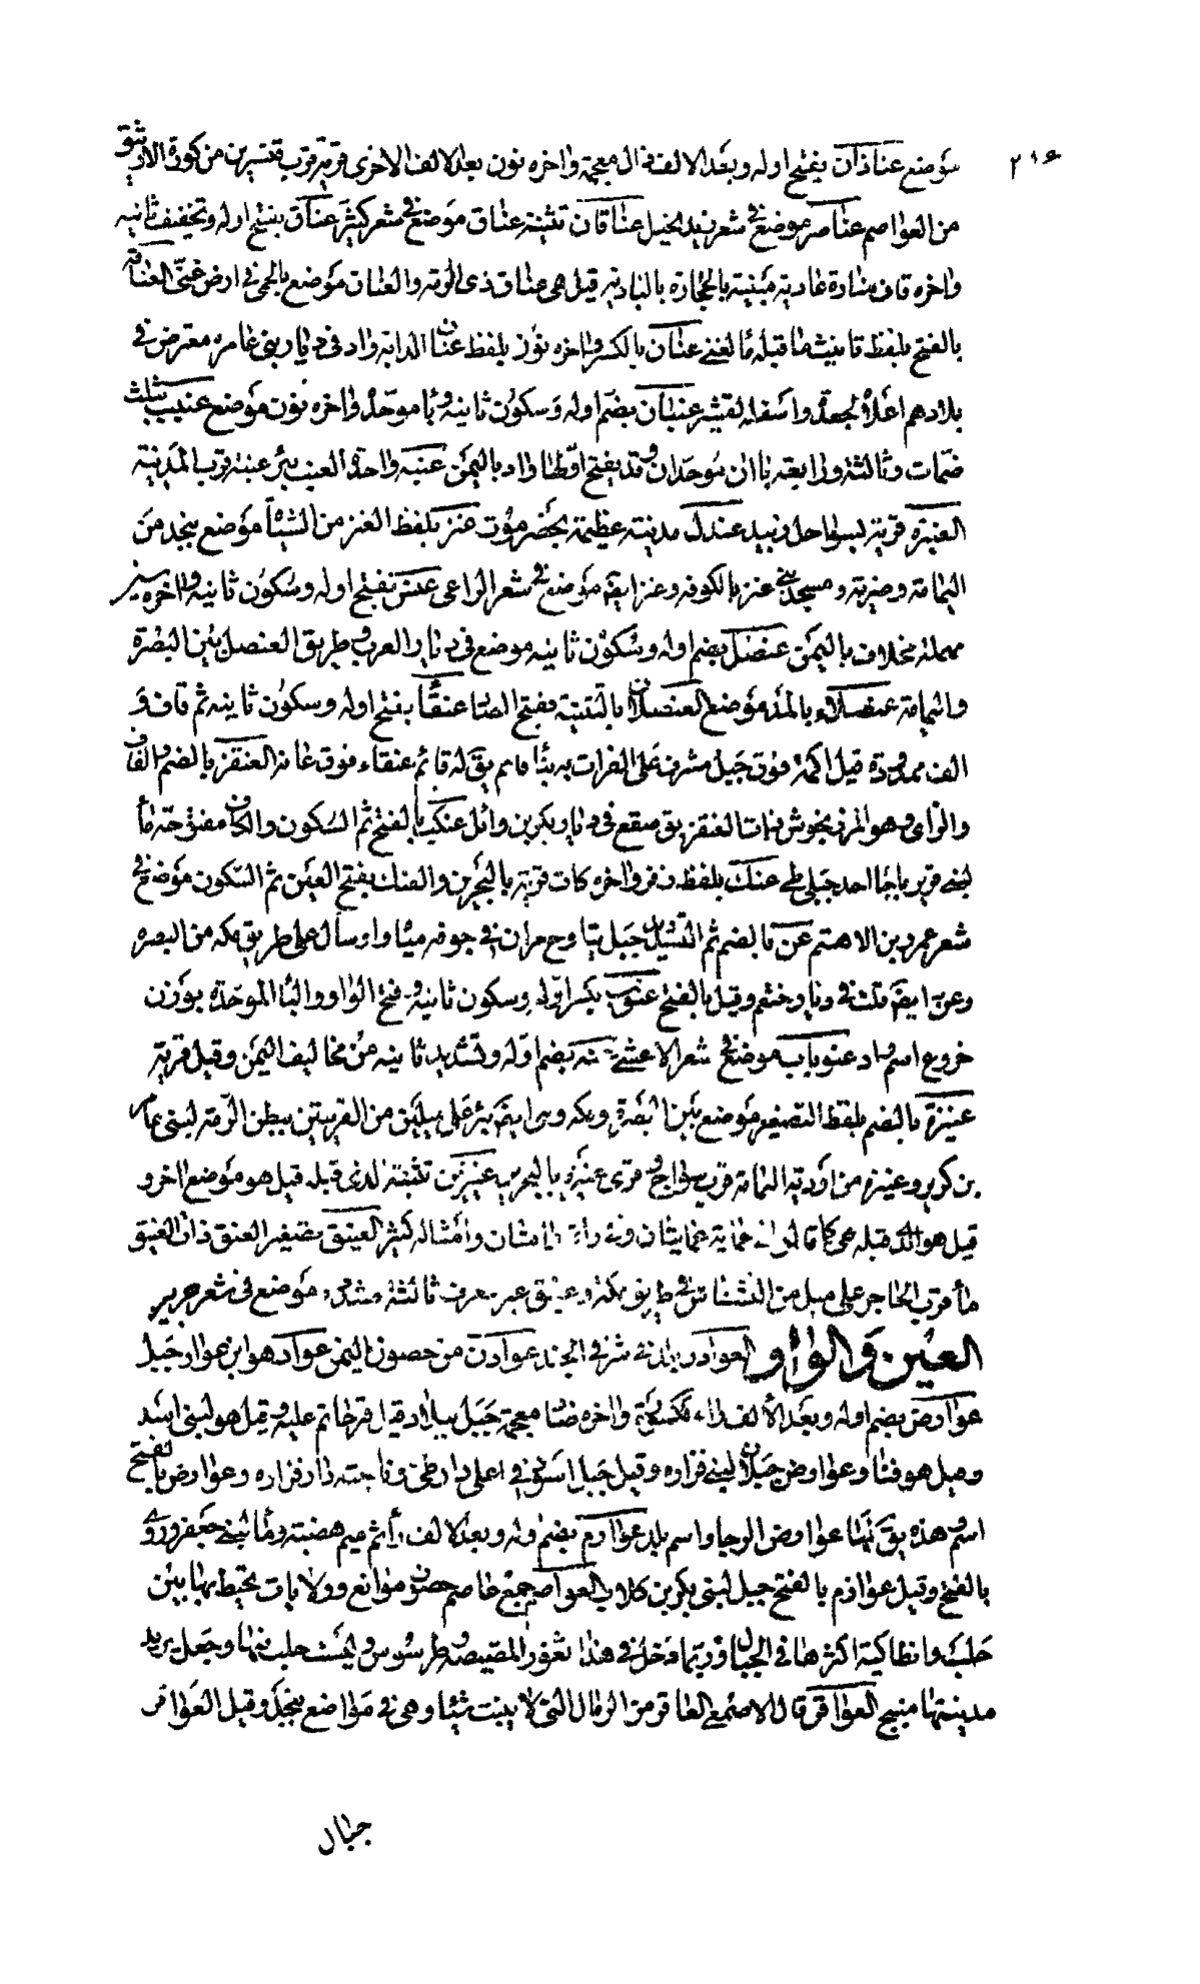 ٢١٤
موضع عناذان بفتح اوله وبعد الالف ذال معجمة واخره نون بعد الالف الاخرى قرية قرب قنسرين من كورة الارتيق
من العواصم عناصر موضع في شعر زيد الخيل عناقان تثنية عناق موضع في شعر كثير عناق بفتح اوله وتخفيف ثانيه
واخره قاف منارة عادية مبنية بالحجارة بالبادية قيل هي عناق ذي الرمة والعناق موضع بالحمى في ارض غنى العناقة
بالفتح بلفظ تانيث ما قبله ماء لغنى عنان بالكسر واخره نون بلفظ عنان الدابة واد في ديار بني عامر معترض في
بلادهم اعلاه لجعدة واسفله لقشير عنبان بضم اوله وسكون ثانيه وباء موحدة واخره نون موضع عنبب بثلث
ضمات وثالثه ورابعه باآن موحدان وقد يفتح اولها واد باليمن عنبه واحدة العنب بئر عنبة قرب المدينة
العنبرة قرية بسواحل زبيد عندل مدينة عظيمة بحضرموت عنز بلفظ العنز من الشاء موضع بنجد من
اليمامة وضرية ومسجد بني عنز بالكوفة وعنز ايضا موضع في شعر الراعي عنس بفتح اوله وسكون ثانيه واخره سين
مهملة مخلاف باليمن عنصل بضم اوله وسكون ثانيه موضع في ديار العرب وطريق العنصل بين البصرة
واليمامة عنصلاء بالمد موضع العنصلان بالتثنية وفتح الصاد عنقاء بفتح اوله وسكون ثانيه ثم قاف و
الف ممدودة قيل اكمة فوق جبل مشرف على الفرات به بناء قائم عنقاء فوق عانه العنقز بالضم والقاف
والزاى وهو المرزنجوش ذات العنقز يق صقع في ديار بكر بن وائل عنكب بالفتح ثم السكون والكاف مفتوحة ماء
لبني فرير باجا احد جبلي طي عنك بلفظ زفر واخره كاف قرية بالبحرين والعنك بفتح العين ثم السكون موضع في
شعر عمرو بن الاهتم عن بالضم ثم التشديد جبل يناوح مران في جوفه مياه واوشال على طريق مكه من البصره
وعن ايضا قلت في ديار خثعم وقيل بالفتح عنوب بكسر اوله وسكون ثانيه وفتح الواو والباء الموحدة بوزن
خروع اسم واد عنوباب موضع في شعر الاعشى عنه بضم اوله وتشديد ثانيه من مخاليف اليمن وقيل قرية
عنيزة بالضم بلفظ التصغير موضع بين البصرة ومكه وهي ايضا بئر على ميلين من القريتين ببطن الرمة لبني عامر
بن كريز وعنيزة من اودية اليمامة قرب سواج وقرى عنيزة بالبحرين عنيزتين تثنية الذي قبله قيل هو موضع اخر و
قيل هو الذي قبله وامثاله كثير العنيق بتصغير العنق ذات العنيق
ماء قرب الحاجر على ميل من النشناش في طريق مكة وعينق غير معرف ثالثة مشددة موضع في شعر جرير
العين والواو العوادر بلدة في شرقي الجند عوادن من حصون اليمن عوار هو ابن عوار جبل
عوارض بضم اوله وبعد الالف راء مكسورة واخره ضاد معجمة جبل ببلاد طي عليه قبر حاتم وقيل هو لبني اسد
وقيل هو قنا وعوارض جبلان لبني فزاره وقيل جبل اسود في اعلى دار طي وناحية دار فزاره وعوارض بالفتح
اسم هذه يق لها عوارض الرجاز اسم بلد عوارم بضم اوله وبعد الالف راء ثم ميم هضبة وماء لبني جعفر وروى
بالفتح وقيل عوارم بالفتح جبل لبني بكر بن كلاب العواصم جمع عاصم حصون موانع وولايات يحيط بها بين
حلب وانطاكية اكثرها في الجبال وربما دخل في هذا ثغور المصيصه وطرسوس وليست حلب منها وجعل يزيد
مدينتها منبج العواقر قال الاصمعي العاقر من الرمال التي لا ينبت شيئا وهي في مواضع بنجد وقيل العواقر
جبال